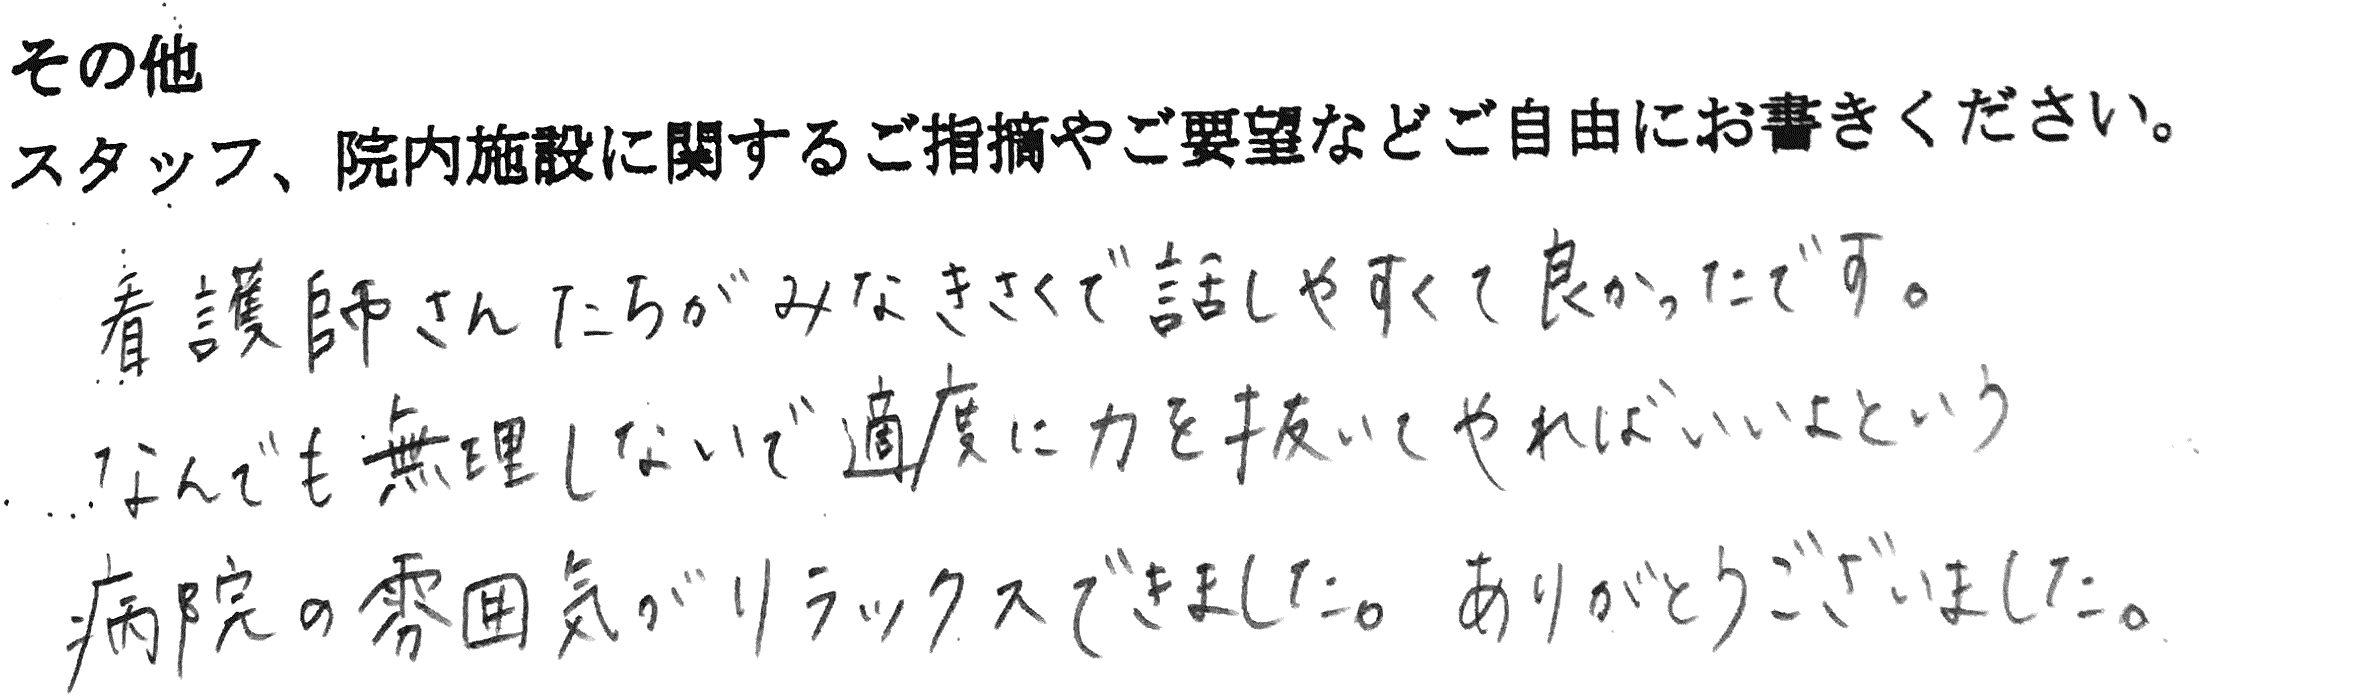 その他
スタッフ、院内施設に関するご指摘やご要望などご自由にお書きください。
看護師さんたちがみなきさくで話しやすくて良かったです。
なんでも無理しないで適度に力を抜いてやればいいよという
病院の雰囲気がリラックスできました。ありがとうございました。